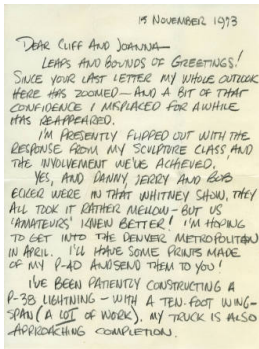 15 NOVEMBER 1973
DEAR CLIFF AND JOANNA—
LEAPS AND BOUNDS OF GREETINGS!
SINCE YOUR LAST LETTER MY WHOLE OUTLOOK
HERE HAS ZOOMED—AND A BIT OF THAT
CONFIDENCE I MISPLACED FOR A WHILE
HAS REAPPEARED.
I'M PRESENTLY FLIPPED OUT WITH THE
RESPONSE FROM MY SCULPTURE CLASS AND
THE INVOLVEMENT WE'VE ACHIEVED.
YES, AND DANNY, JERRY AND BOB
ECKER WERE IN THAT WHITNEY SHOW, THEY
ALL TOOK IT RATHER MELLOW—BUT US
'AMATEURS' KNEW BETTER! I'M HOPING
TO GET INTO THE DENVER METROPOLITAN
IN APRIL. I'LL HAVE SOME PRINTS MADE
OF MY P-40 AND SEND THEM TO YOU!
I'VE BEEN PATIENTLY CONSTRUCTING A
P-38 LIGHTNING—WITH A TEN-FOOT WING-
SPAN (A LOT OF WORK). MY TRUCK IS ALSO
APPROACHING COMPLETION.